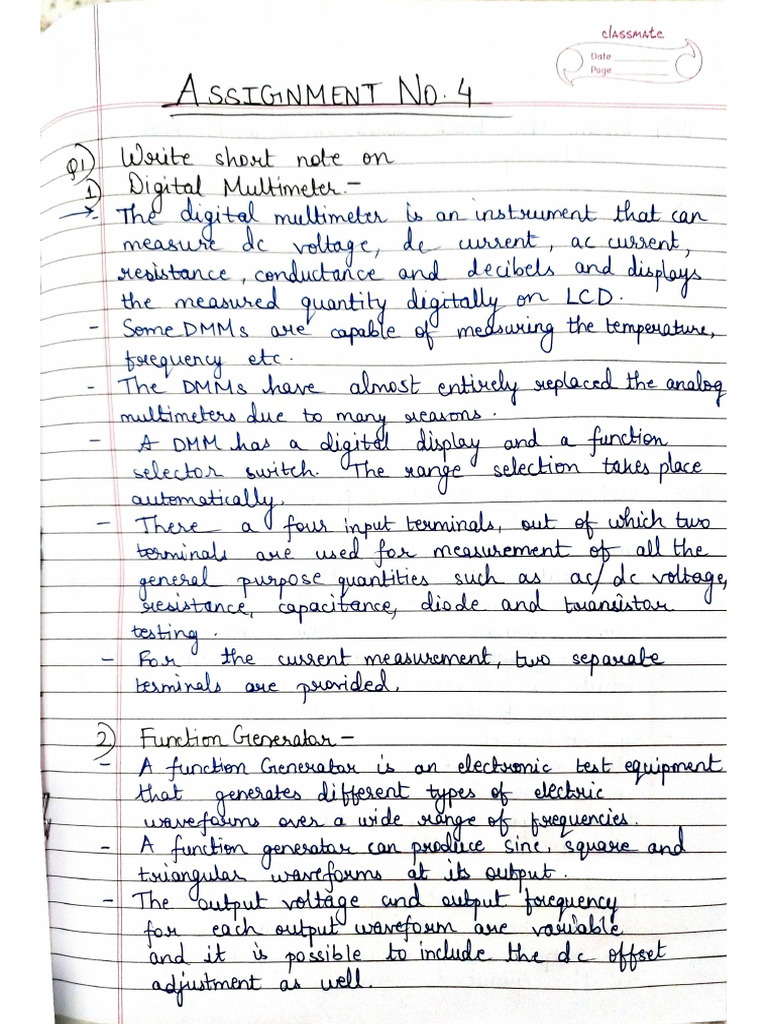 classmate
Date
Page
ASSIGNMENT NO. 4
Q1) Write short note on
1) Digital Multimeter.-
→- The digital multimeter is an instrument that can
measure dc voltage, dc current, ac current,
resistance, conductance and decibels and displays
the measured quantity digitally on LCD.
- Some DMMs are capable of measuring the temperature,
frequency etc.
- The DMMs have almost entirely replaced the analog
multimeters due to many reasons.
- A DMM has a digital display and a function
selector switch. The range selection takes place
automatically.
- There a four input terminals, out of which two
terminals are used for measurement of all the
general purpose quantities such as ac/dc voltage,
resistance, capacitance, diode and transistor
testing.
- For the current measurement, two separate
terminals are provided.
2) Function Generator -
- A function Generator is an electronic test equipment
that generates different types of electric
waveforms over a wide range of frequencies.
- A function generator can produce sine, square and
triangular waveforms at its output.
- The output voltage and output frequency
for each output waveform are variable
and it is possible to include the dc offset
adjustment as well.